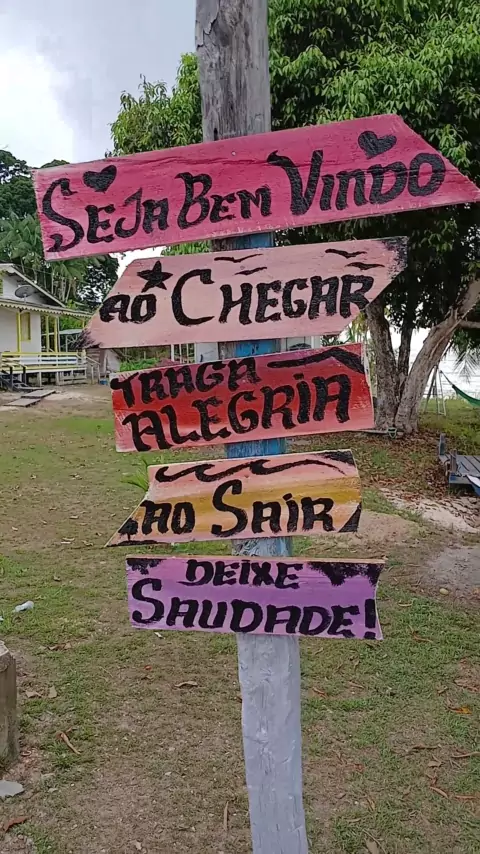 SEJA BEM VINDO
AO CHEGAR
TRAGA
ALEGRIA
AO SAIR
DEIXE
SAUDADE!